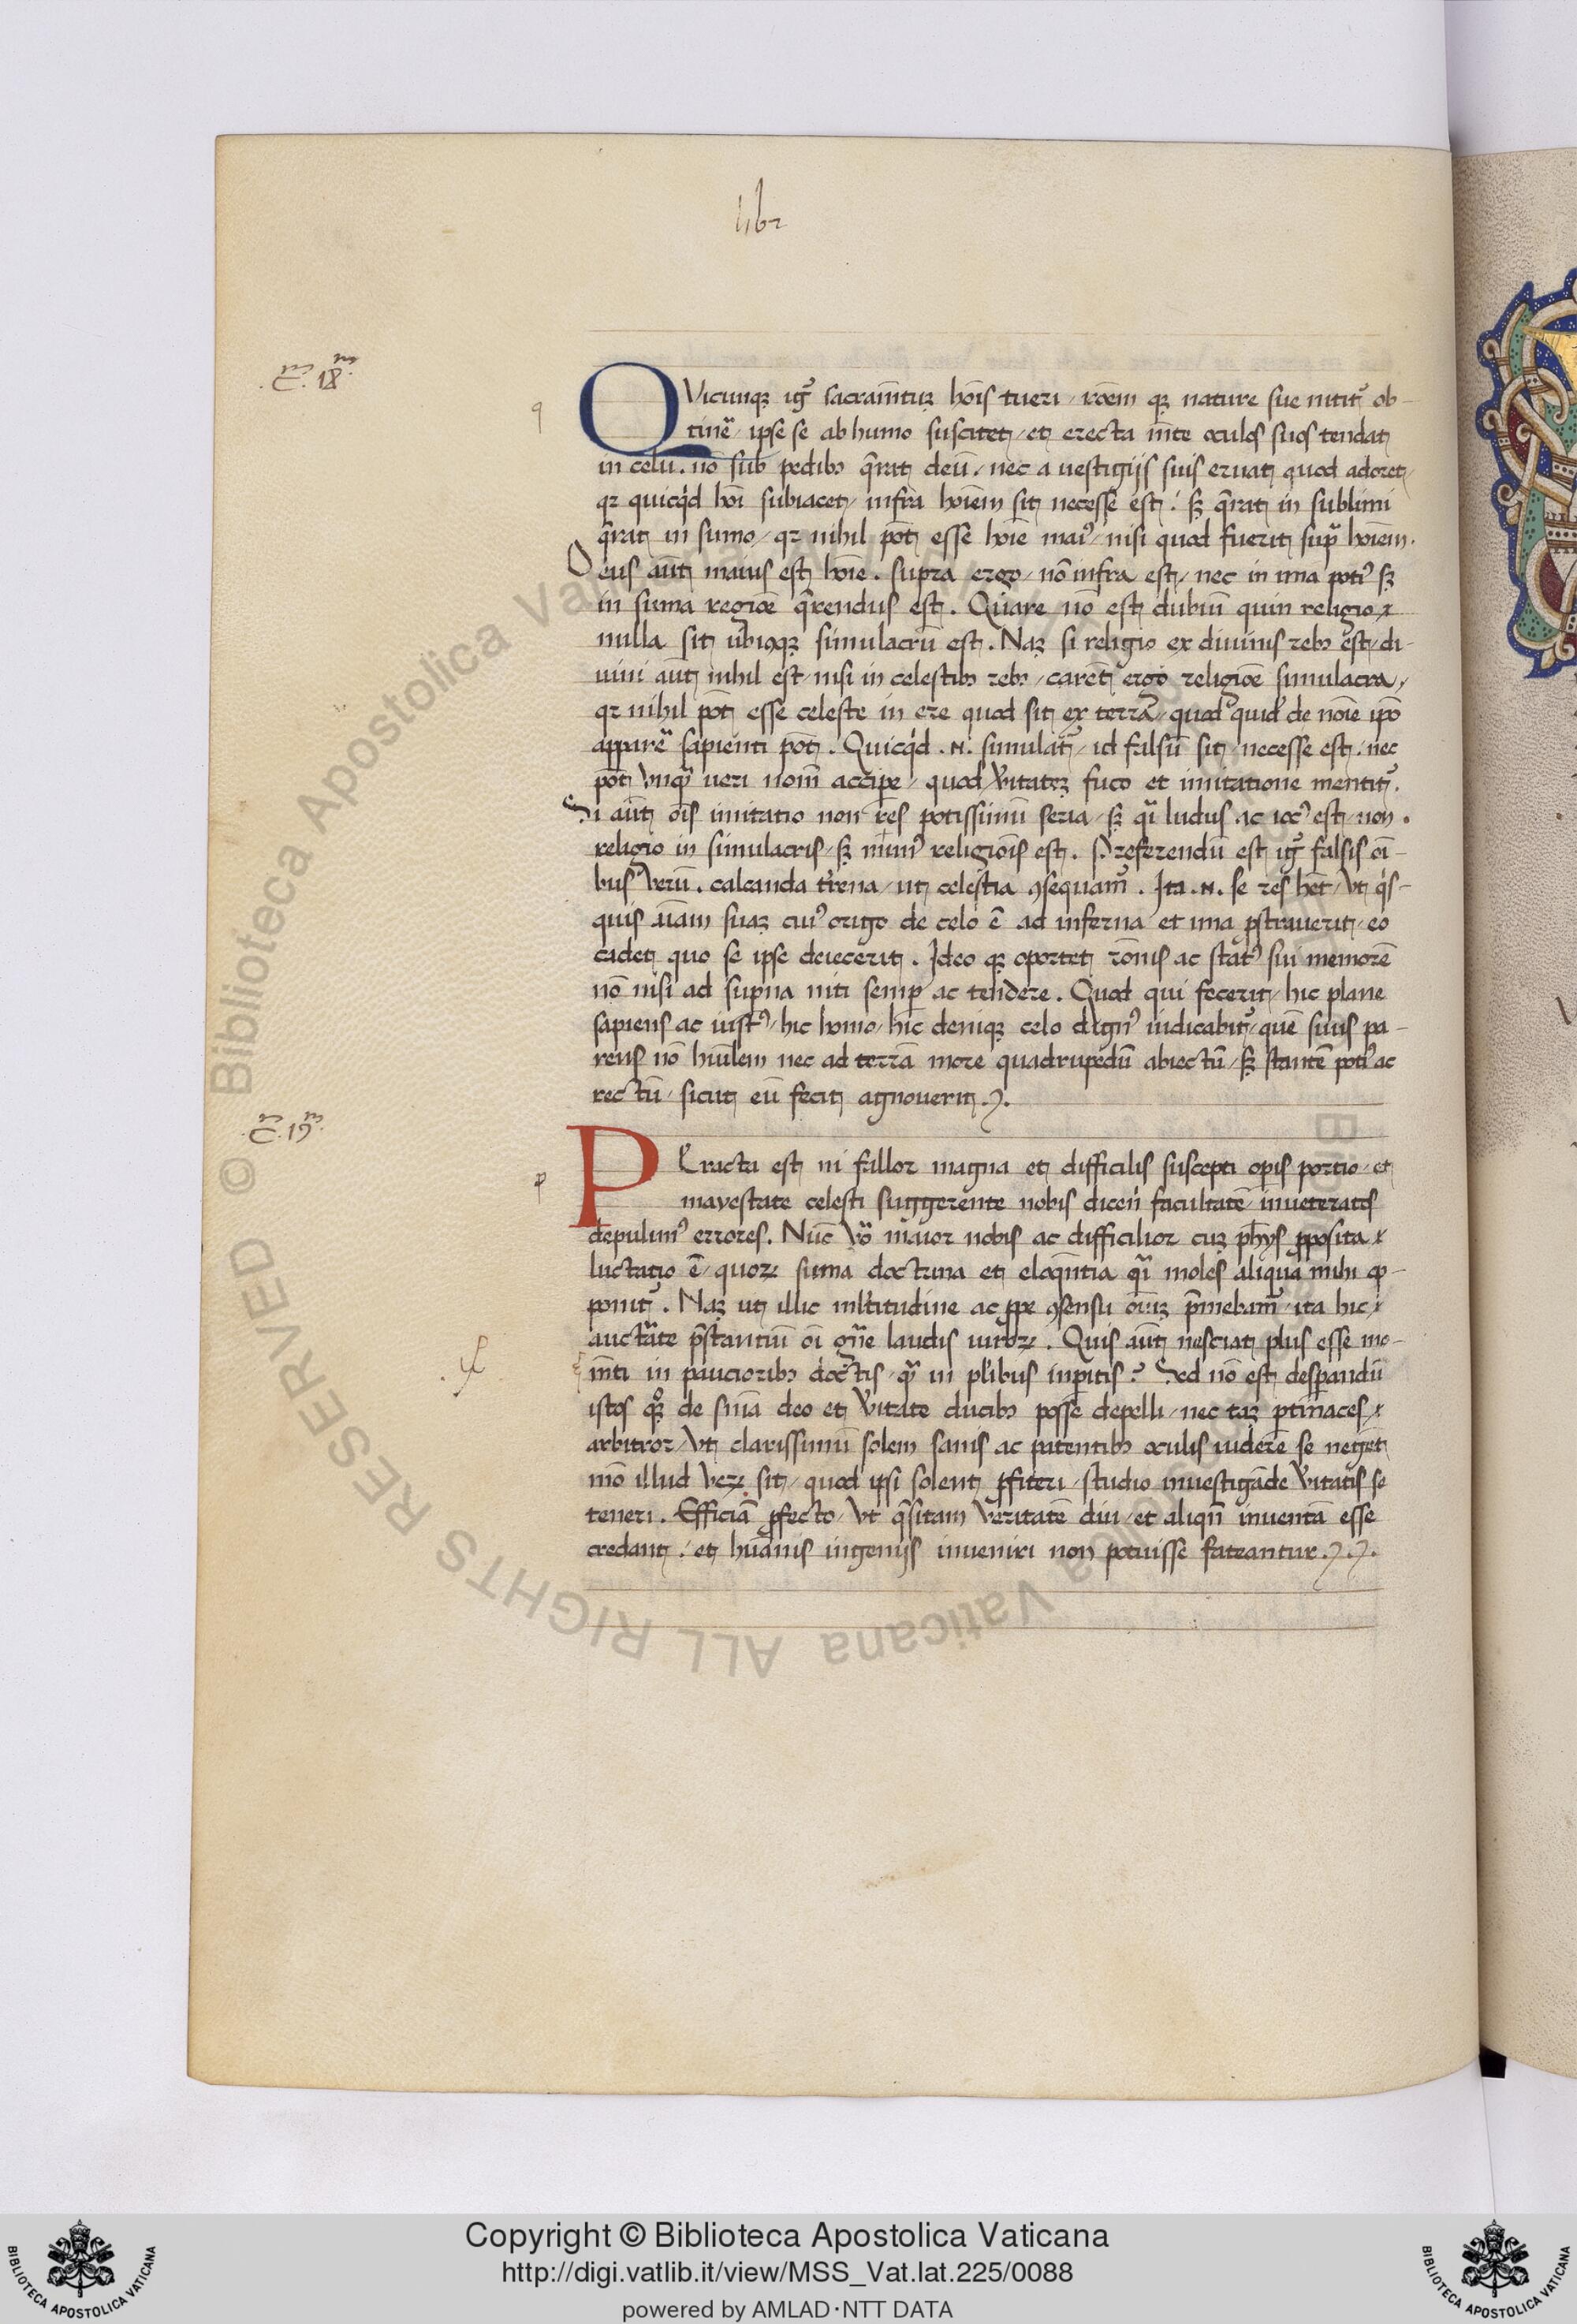 libr
C. 18.
q
QVicunqꝫ igr̃ sacramr̃tuꝫ hoĩs tueri, rõem qꝫ nature sue nitit̃ ob-
tinẽ, ipse se ab humo suscitet, et erecta m̃te oculos suos tendat
in celũ. nõ sub pedibꝰ q̃rat deũ, nec a uestigijs suis eruat quod adoret,
qꝛ quicq̇d hoĩ subiacet, infra hoĩem sit necesse est: sꝫ q̃rat in sublimi
q̃rat in sumo, qꝛ nihil põt esse hoĩe maiꝰ, nisi quod fuerit supᷓ hoĩem.
Deus aũt maius est hoĩe. supra ergo, nõ infra est, nec in ima potiꝰ sꝫ
in suma regiõe q̃rendus est. Quare nõ est dubiũ quin religio
nulla sit ubicũqꝫ simulacrũ est. Naꝫ si religio ex diuinis rebꝰ est, di-
uini aũt nihil est, nisi in celestibꝰ rebꝰ, carẽt ergo religiõe simulacra,
qꝛ nihil põt esse celeste in ere quod sit ex terrã, quod quid̾ de noĩe ip̃o
apparẽ sapienti põt. Quicq̇d .N. simulat̃, id falsũ sit necesse est. nec
põt vnqᷓ ueri nom̃ accipe, quod v̾itateꝫ fuco et imitatione mentit̃.
Si aũt oĩs imitatio non res potissimũ seria, sꝫ qᷓi ludus ac iocꝰ est, non.
religio in simulacris, sꝫ mimꝰ religiõis est. Preferendũ est igr̃ falsis oĩ-
bus verũ. calcanda t̾rena, ut celestia ꝯsequam̃. Ita .N. se res hẽt, vt q̇s-
quis aĩam suaꝫ cuiꝰ origo de celo ẽ ad inferna et ima ꝓstrauerit, eo
cadet quo se ipse deiecerit. Ideo qꝫ oportet rõnis ac statꝰ sui memorẽ
nõ nisi ad supna niti semp ac tendere. Quod qui fecerit, hic plane
sapiens ac iustꝰ, hic homo, hic deniqꝫ celo dignꝰ iudicabit̃, quẽ suus pa-
rens nõ hũilem nec ad terrã more quadrupedũ abiectũ, sꝫ stantẽ potiꝰ ac
rectũ, sicut eũ fecit agnouerit.
C. 19.
p
PEracta est ni fallor magna et difficilis suscepti opis portio, et
mayestate celesti suggerente nobis dicen̾i facultatẽ inueteratos
depulimꝰ errores. Nũc v̾o maior nobis ac difficilior cuꝫ ph̃ys ꝓposita
luctatio ẽ, quoꝝ suma doctrina et eloq̃ntia qᷓi moles aliqua mihi op-
ponit̃. Naꝫ ut illic ml̾titudine ac ꝓpe ꝯsensu oĩuꝫ p̃mebam̃, ita hic
auctᷓate p̃stantiũ oĩ gñe laudis uiroꝝ. Quis aũt nesciat plus esse mo-
m̃ti in paucioribꝰ doctis, qᷓ in pl̾ibus inpitis? Sed nõ est despandũ
istos qᷓꝫ de sñia deo et v̾itate ducibꝰ posse depelli, nec taꝫ ptinaces
arbitror, vt clarissimũ solem sanis ac patentibꝰ oculis uidere se neget
mõ illud veꝝ sit, quod ipsi solent ꝓfiteri, studio inuestigãde v̾itatis se
teneri. Efficiã ꝓfecto, vt q̃sitam veritatẽ diu, et aliqñ inuentã esse
credant: et huãnis ingenijs inueniri non potuisse fateantur.
Copyright © Biblioteca Apostolica Vaticana
http://digi.vatlib.it/view/MSS_Vat.lat.225/0088
powered by AMLAD·NTT DATA